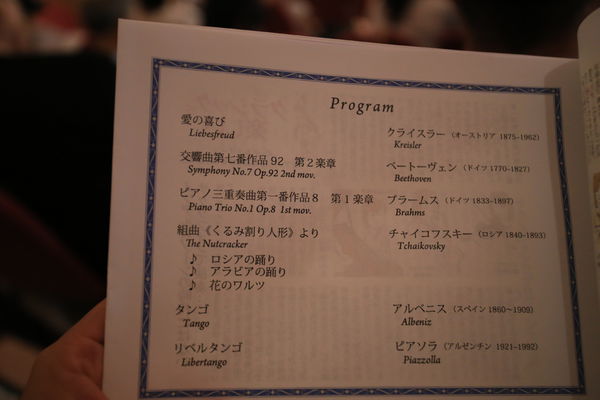 Program
愛の喜び クライスラー (オーストリア 1875-1962)
Liebesfreud Kreisler
交響曲第七番作品92 第2楽章 ベートーヴェン (ドイツ 1770-1827)
Symphony No.7 Op.92 2nd mov. Beethoven
ピアノ三重奏曲第一番作品8 第1楽章 ブラームス (ドイツ 1833-1897)
Piano Trio No.1 Op.8 1st mov. Brahms
組曲《くるみ割り人形》より チャイコフスキー (ロシア 1840-1893)
The Nutcracker Tchaikovsky
♪ ロシアの踊り
♪ アラビアの踊り
♪ 花のワルツ
タンゴ アルベニス (スペイン 1860~1909)
Tango Albeniz
リベルタンゴ ピアソラ (アルゼンチン 1921-1992)
Libertango Piazzolla